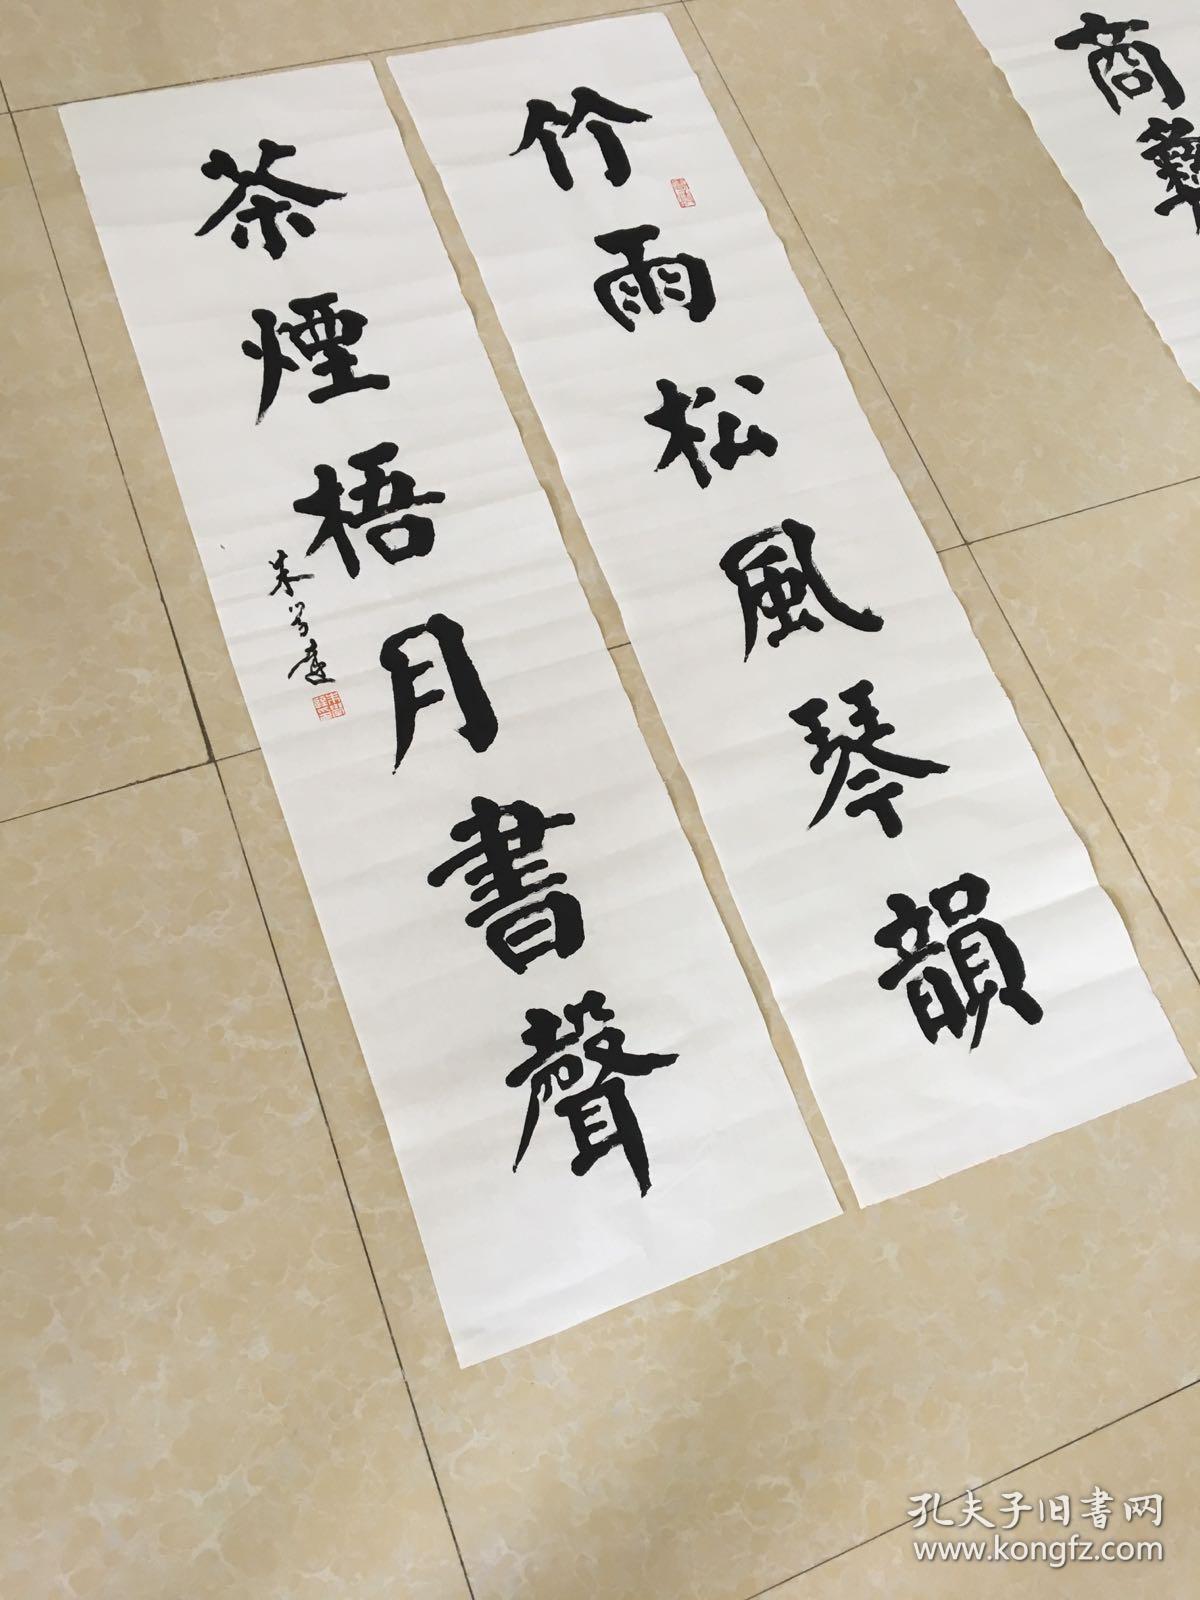 竹雨松風琴韻
茶煙梧月書聲
商彝
孔夫子旧书网
www.kongfz.com